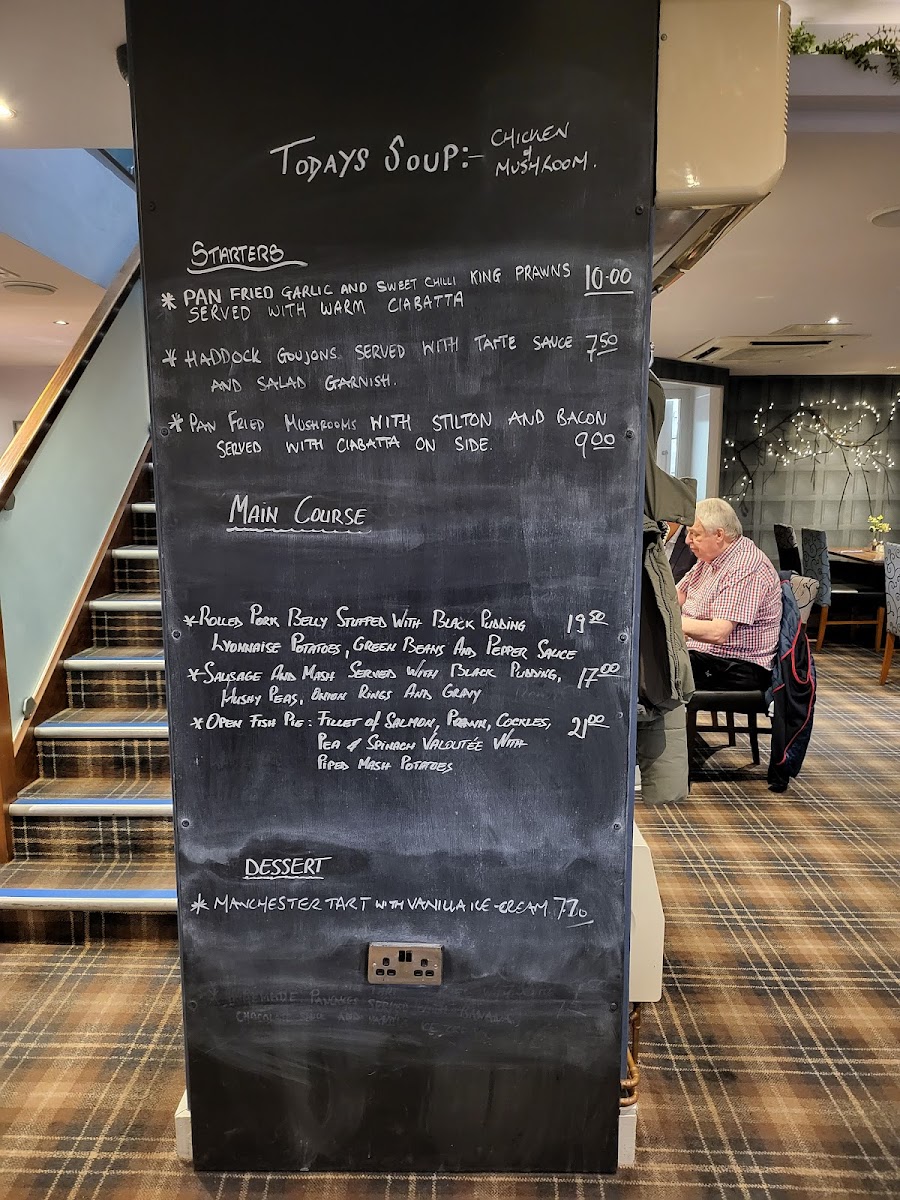 TODAYS SOUP:- CHICKEN
& MUSHROOM.
STARTERS
* PAN FRIED GARLIC AND SWEET CHILLI KING PRAWNS 10.00
SERVED WITH WARM CIABATTA
* HADDOCK GOUJONS SERVED WITH TARTE SAUCE 7.50
AND SALAD GARNISH.
* PAN FRIED MUSHROOMS WITH STILTON AND BACON
SERVED WITH CIABATTA ON SIDE. 9.00
MAIN COURSE
* ROLLED PORK BELLY STUFFED WITH BLACK PUDDING 19.50
LYONNAISE POTATOES, GREEN BEANS AND PEPPER SAUCE
* SAUSAGE AND MASH SERVED WITH BLACK PUDDING, 17.00
MUSHY PEAS, ONION RINGS AND GRAVY
* OPEN FISH PIE: FILLET OF SALMON, PRAWN, COCKLES, 21.00
PEA & SPINACH VALOUTÉE WITH
PIPED MASH POTATOES
DESSERT
* MANCHESTER TART WITH VANILLA ICE-CREAM
PANCAKES
CHOCOLATE SAUCE AND